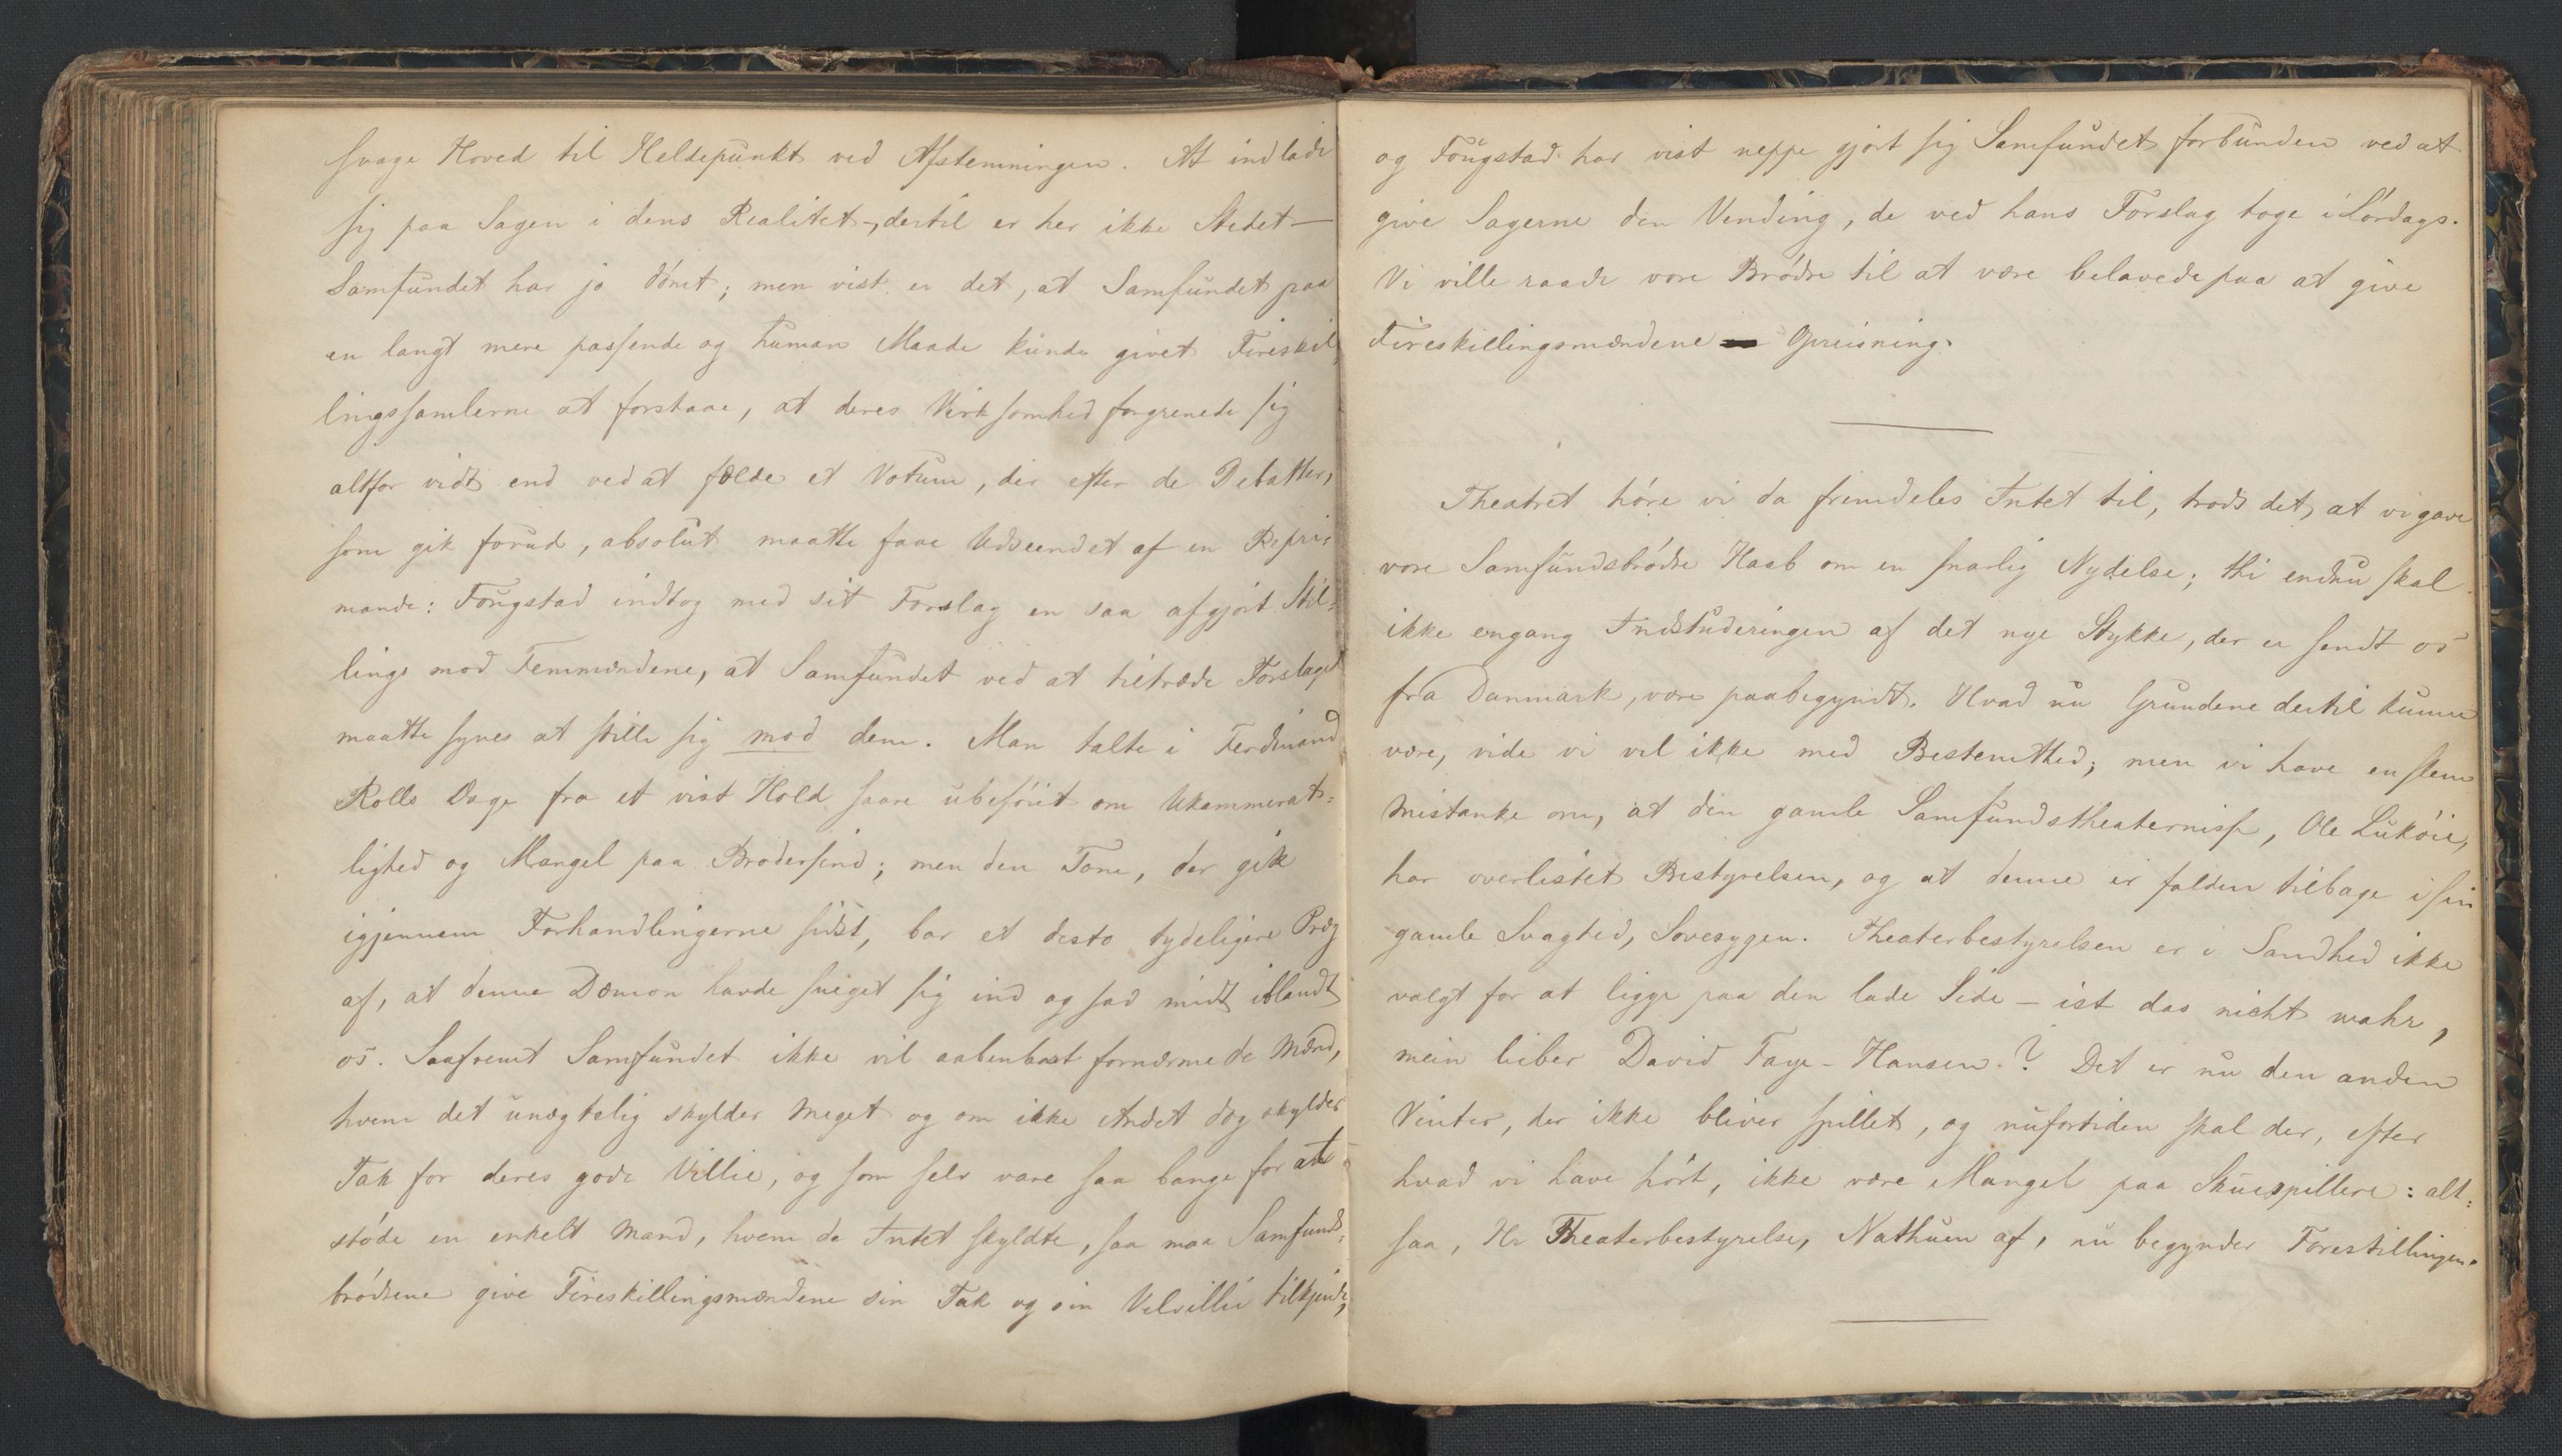 svage Hoved til Heldepunkt ved Afstemningen. At indlade
sig paa Sagen i dens Realitet, dertil er her ikke Stedet —
Samfundet har jo dømt; men vist er det, at Samfundet paa
en langt mere passende og human Maade kunde givet Fireskil
lingssamlerne at forstaae, at deres Virksomhed forgrenede sig
altfor vidt end ved at fælde et Votum, der efter de Debatter,
som gik forud, absolut maatte faae Udseendet af en Repri-
mande: Fougstad indtog med sit Forslag en saa afgjort Stil=
lings mod Femmændene, at Samfundet ved at tiltræde Forslaget
maatte synes at stille sig mod dem. Man talte i Ferdinand
Rolls Dage fra et vist Hold saare ubeføiet om Ukammerat=
lighed og Mangel paa Brodersind; men den Tone, der gik
igjennem Forhandlingerne sidst, bar et desto tydeligere Præg
af, at denne Dæmon havde sneget sig ind og sad midt iblandt
os. Saafremt Samfundet ikke vil aabenbart fornærme de Mænd,
hvem det unægtelig skylder meget og om ikke Andet dog skylder
Tak for deres gode Villie, og som selv vare saa bange for at
støde en enkelt Mand, hvem de Intet skyldte, saa maa Samfunds=
brødrene give Fireskillingsmændene sin Tak og sin Velvillie tilkjende,
og Fougstad har vist neppe gjort sig Samfundet forbunden ved at
give Sagerne den Vending, de ved hans Forslag toge i Lørdags.
Vi ville raade vore Brødre til at være belavede paa at give
Fireskillingsmændene Opreisning.
Theatret høre vi da fremdeles Intet til, trods det, at vi gave
vore Samfundsbrødre Haab om en snarlig Nydelse; thi endnu skal
ikke engang Indstuderingen af det nye Stykke, der er sendt os
fra Danmark, være paabegyndt. Hvad nu Grundene dertil kunne
være, vide vi vel ikke med Bestemthed; men vi have en slem
Mistanke om, at den gamle Samfundstheaternisse, Ole Lukøie,
har overlistet Bestyrelsen, og at denne er falden tilbage i sin
gamle Svaghed, Sovesygen. Theaterbestyrelsen er i Sandhed ikke
valgt for at ligge paa den lade Side — ist das nicht wahr,
mein lieber David Faye-Hansen? Det er nu den anden
Vinter, der ikke bliver spillet, og nufortiden skal der, efter
hvad vi have hørt, ikke være Mangel paa Skuespillere: alt=
saa, Hr Theaterbestyrelse, Nathuen af, nu begynder Forestillingen.